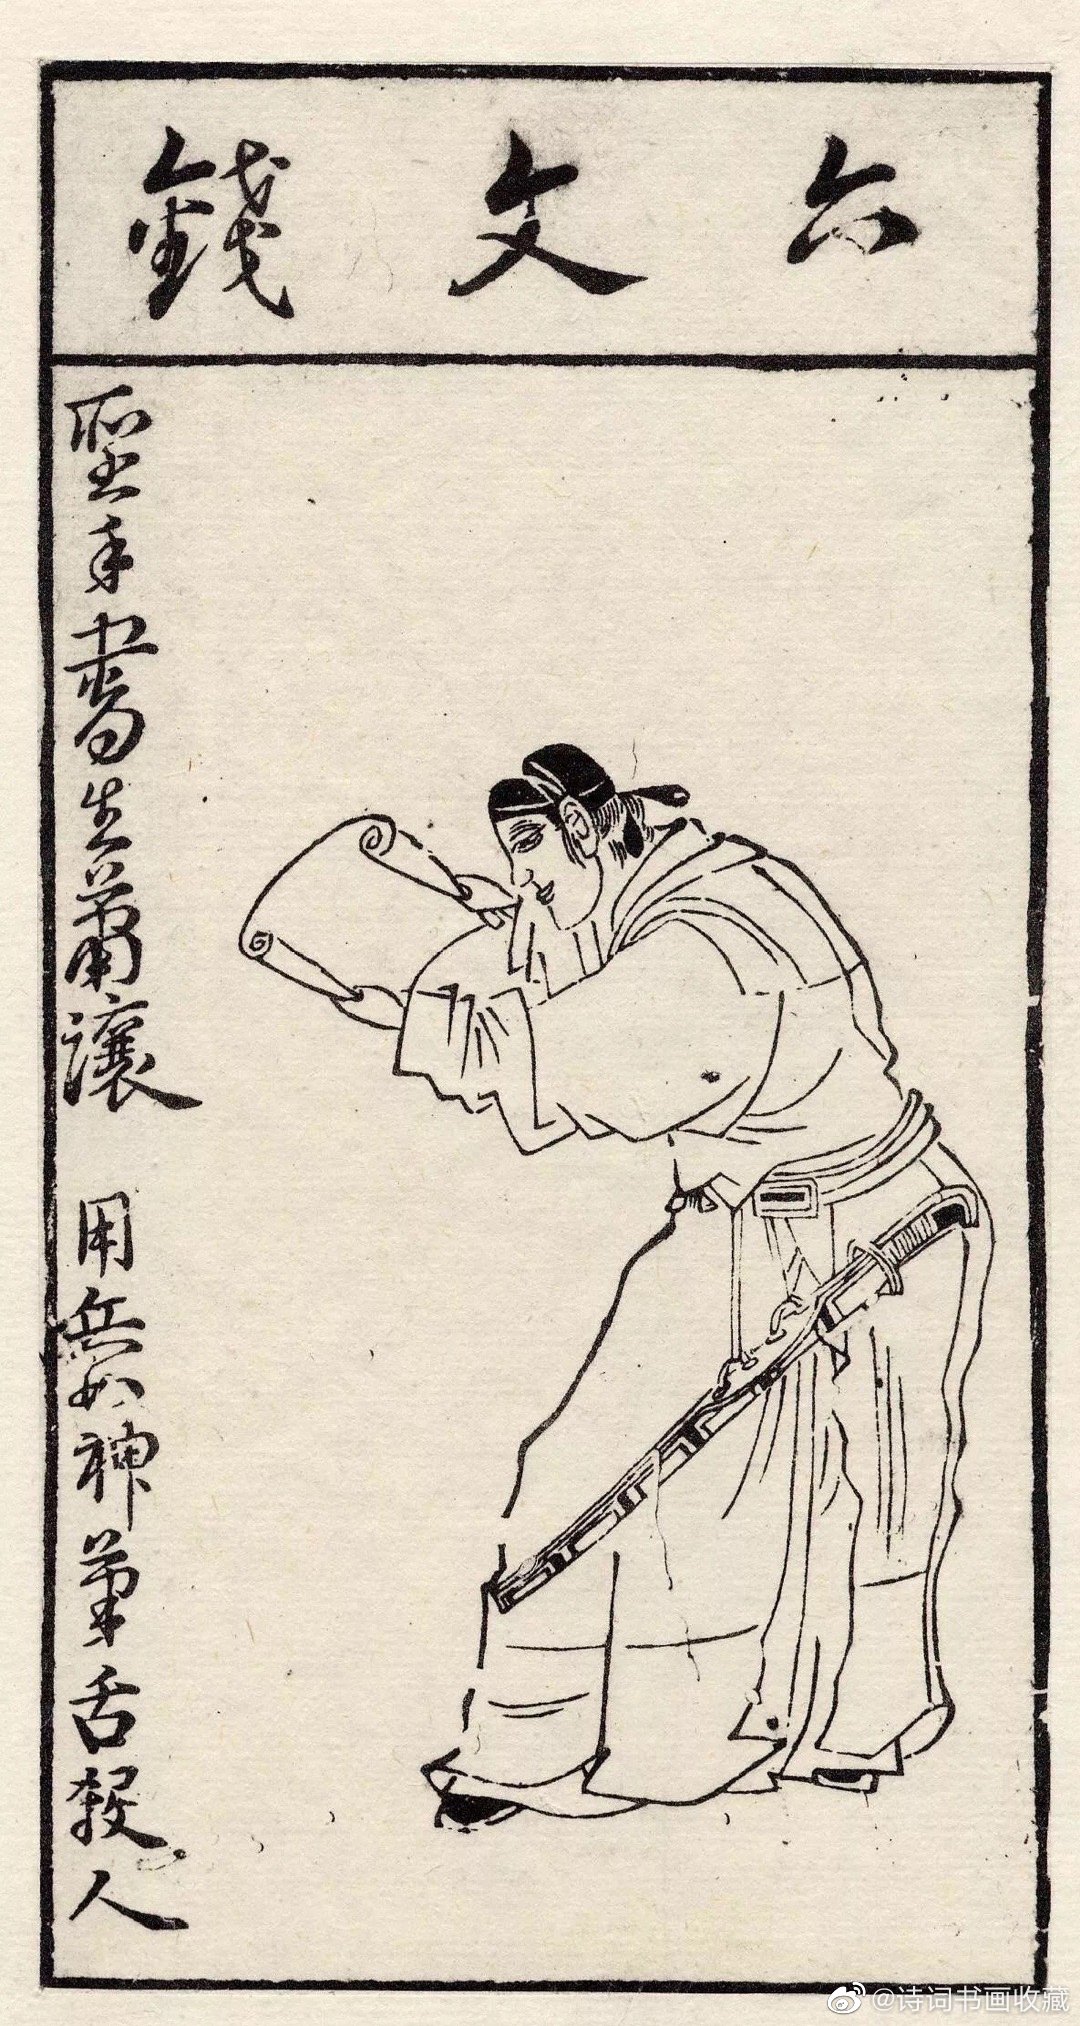 六文錢
聖手書生蕭讓 用兵如神筆舌殺人
@诗词书画收藏